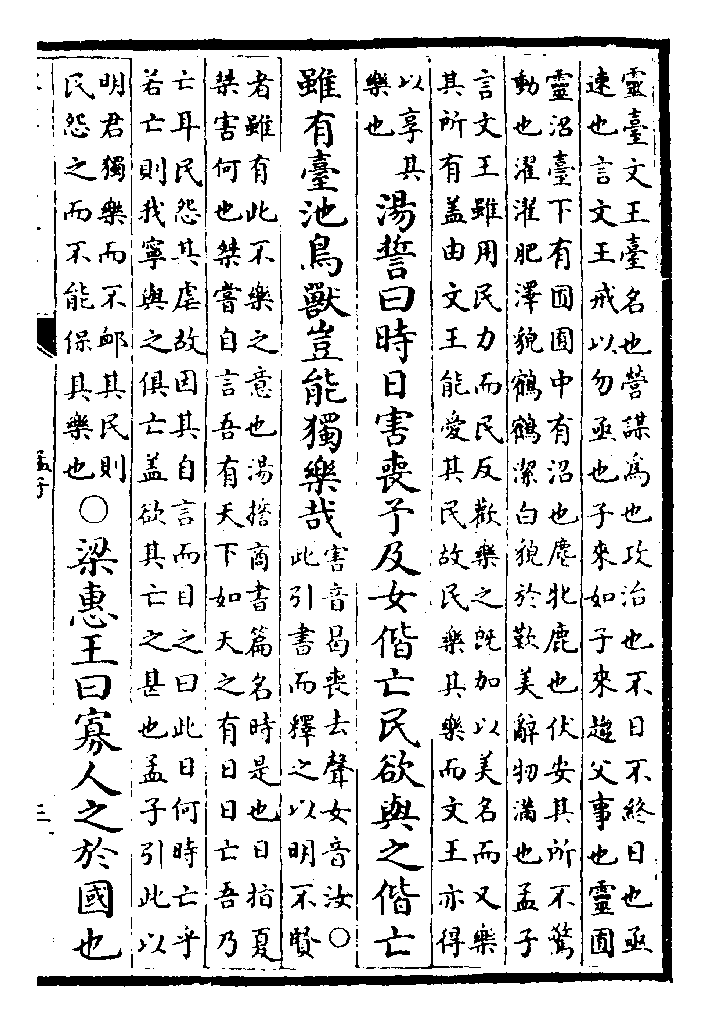 靈臺文王臺名也營謀為也攻治也不日不終日也亟
速也言文王戒以勿亟也子來如子來趨父事也靈囿
靈沼臺下有囿囿中有沼也麀牝鹿也伏安其所不驚
動也濯濯肥澤貌鶴鶴潔白貌於歎美辭牣滿也孟子
言文王雖用民力而民反歡樂之旣加以美名而又樂
其所有盖由文王能愛其民故民樂其樂而文王亦得
以享其
樂也
湯誓曰時日害喪予及女偕亡民欲與之偕亡
雖有臺池鳥獸豈能獨樂哉
害音曷喪去聲女音汝○
此引書而釋之以明不賢
者雖有此不樂之意也湯誓商書篇名時是也日指夏
桀害何也桀嘗自言吾有天下如天之有日日亡吾乃
亡耳民怨其虐故因其自言而目之曰此日何時亡乎
若亡則我寧與之俱亡盖欲其亡之甚也孟子引此以
明君獨樂而不卹其民則
民怨之而不能保其樂也
○梁惠王曰寡人之於國也
孟子
三